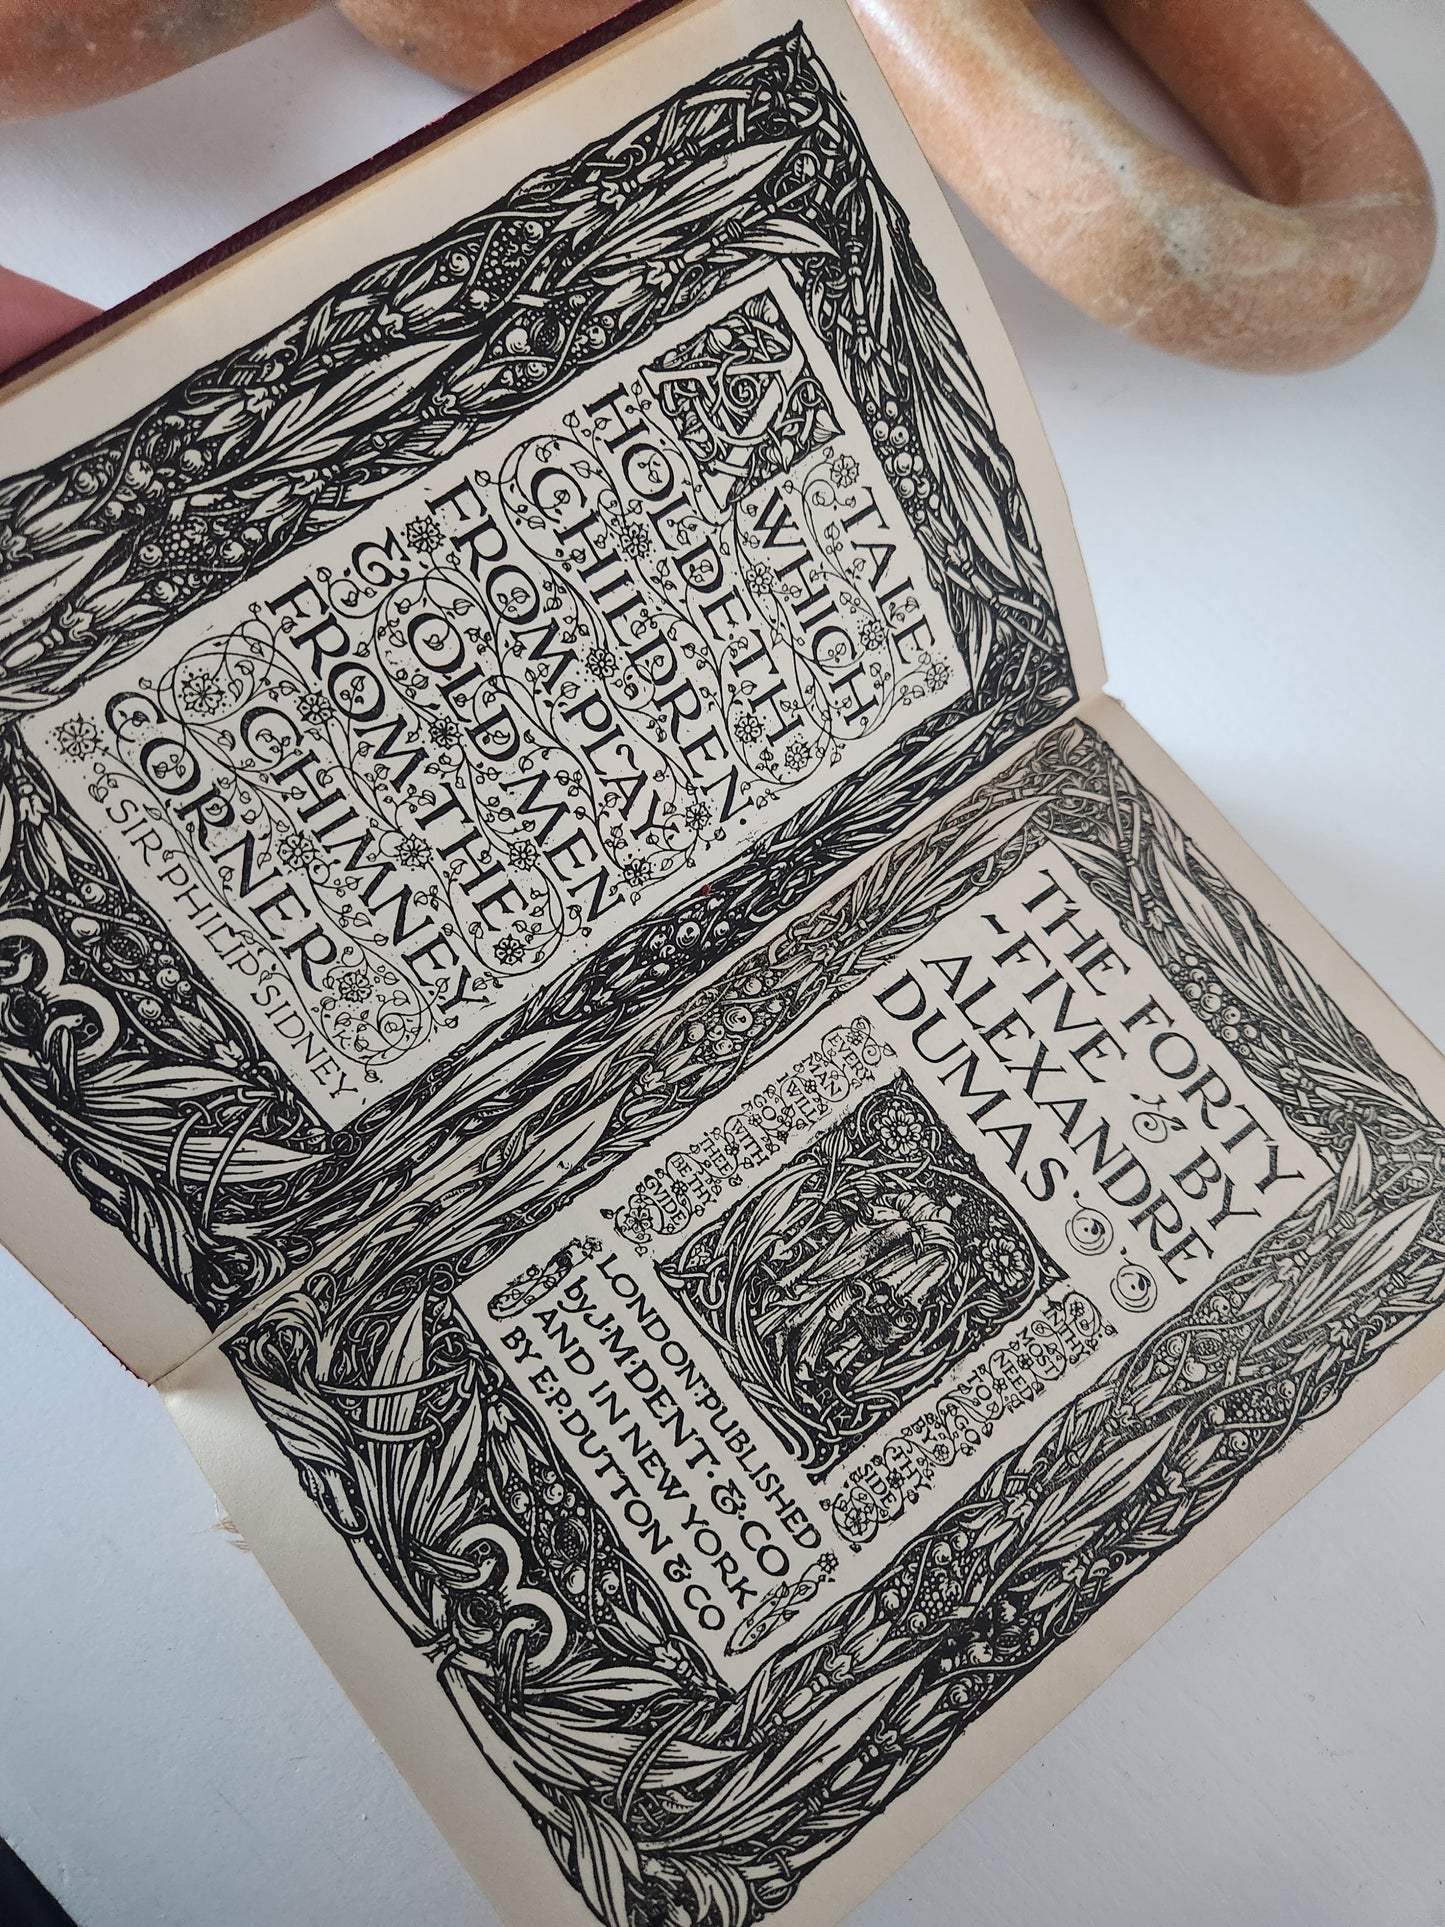 A TALE
WHICH
HOLDETH
CHILDREN
FROM PLAY
& OLD MEN
FROM THE
CHIMNEY
CORNER
SIR PHILIP SIDNEY
THE FORTY
-FIVE BY
ALEXANDRE
DUMAS
EVERY
MAN
I WILL
GO
WITH
THEE
& BE THY
GVIDE
IN THY
MOST
NEED
TO GO
BY THY
SIDE
LONDON: PUBLISHED
by J·M·DENT·&·CO
AND IN NEW YORK
BY E·P·DUTTON & CO